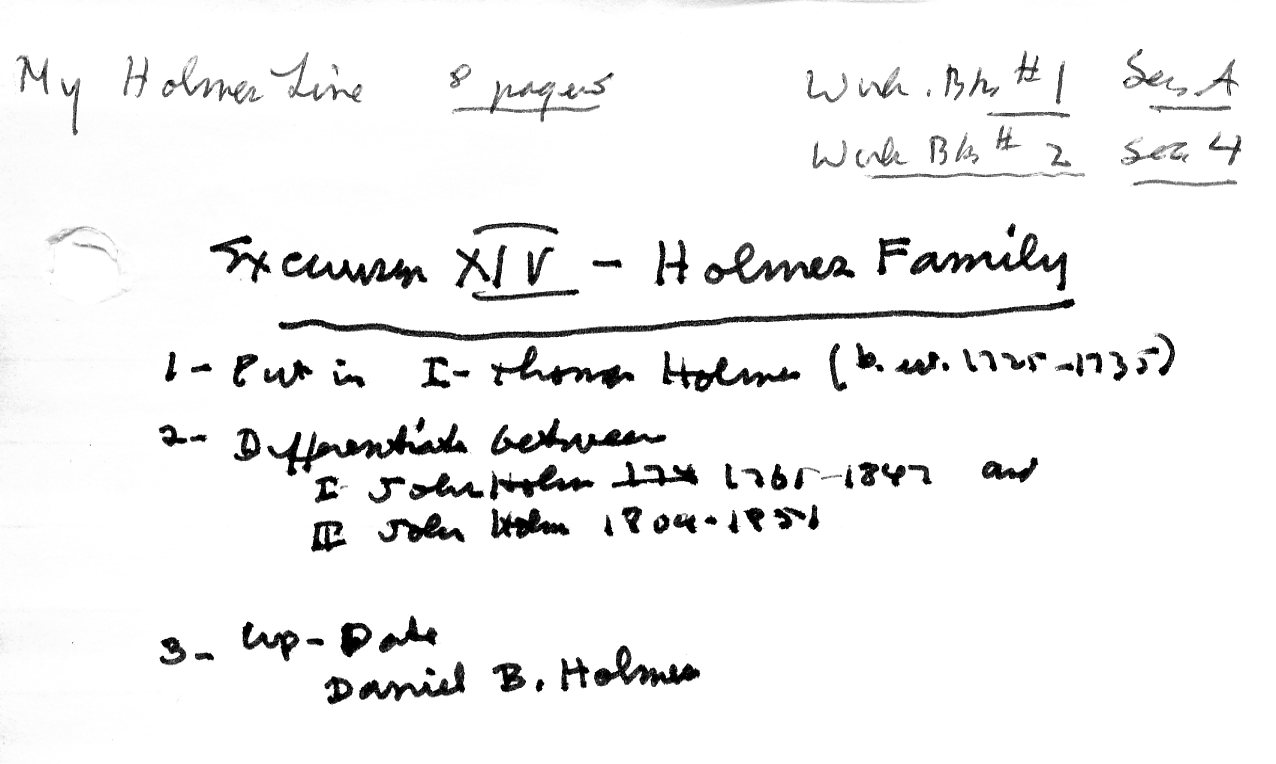 My Holmes Line 8 pages Work. Bk # 1 Sec. A
Work Bk # 2 Sec. 4
Excursus XIV - Holmes Family
1 - Put in I - Thomas Holmes (b. est. 1725-1735)
2 - Differentiate between
I John Holm 174 1765-1847 and
II John Holm
3 - Up-Date
Daniel B. Holmes